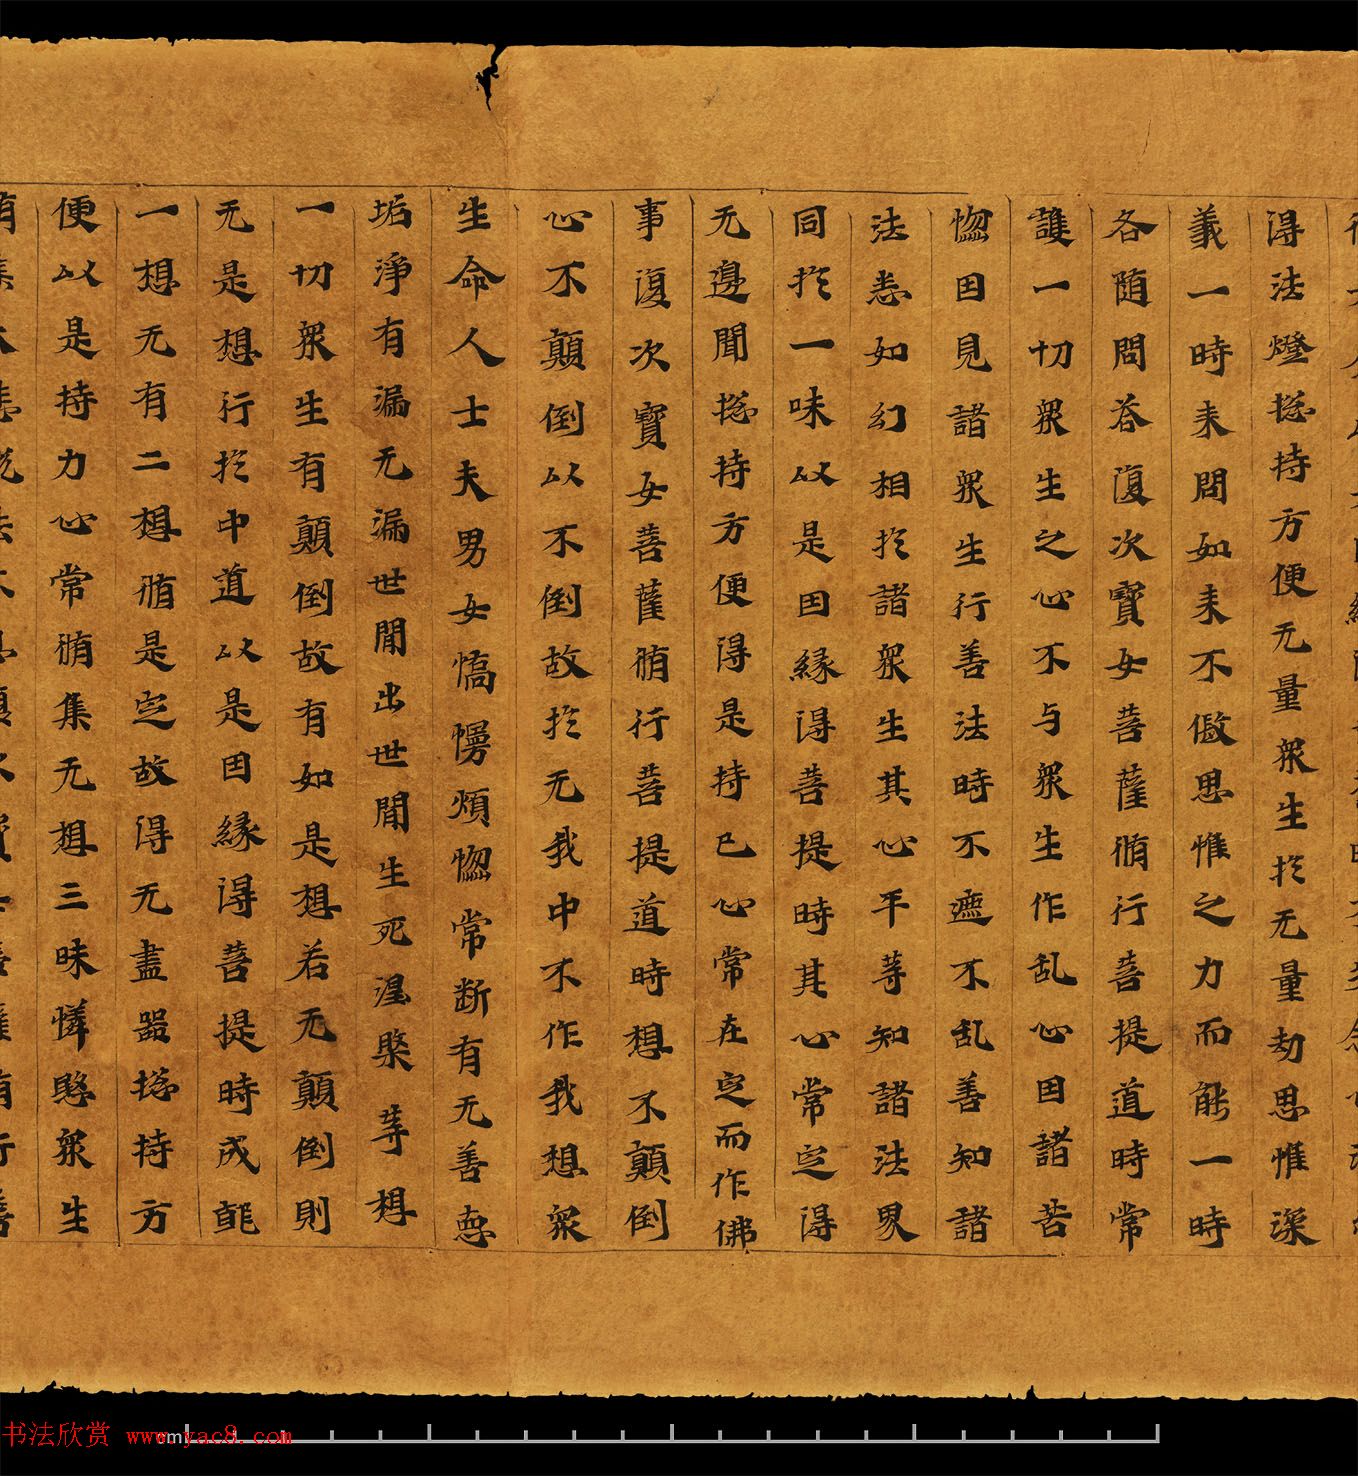 得法燈捴持方便无量衆生扵无量劫思惟深
義一時来問如来不假思惟之力而能一時
各随問荅復次寶女菩薩脩行菩提道時常
護一切衆生之心不与衆生作乱心因諸苦
惱因見諸衆生行善法時不遮不乱善知諸
法悉如幻相扵諸衆生其心平等知諸法界
同扵一味以是因緣得菩提時其心常定得
无邊聞捴持方便得是持已心常在定而作佛
事復次寶女菩薩脩行菩提道時想不顛倒
心不顛倒以不倒故扵无我中不作我想衆
生命人士夫男女憍慢煩惱常断有无善惡
垢淨有漏无漏世間出世間生死涅槃等想
一切衆生有顛倒故有如是想若无顛倒則
无是想行扵中道以是因緣得菩提時成就
一想无有二想脩是定故得无盡器捴持方
便以是持力心常脩集无想三昧憐愍衆生
书法欣赏 www.yac8.com
cm